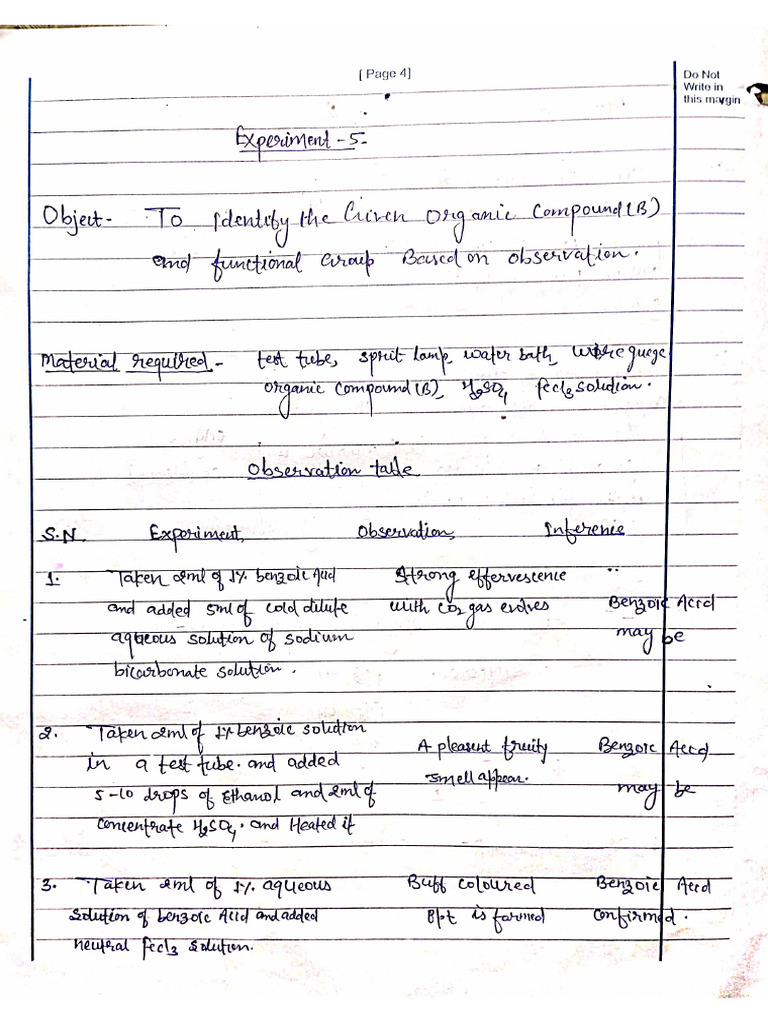 [ Page 4]
Do Not
Write in
this margin
Experiment - 5-
Object - To Identify the Given Organic Compound (B)
and functional Group Based on observation.
Material required - test tube, sprit lamp, water bath, wire guege
organic compound (B), H2SO4 fecl3 solution.
Observation table
S.N. Experiment, Observation, Inference
1. Taken 2ml of 1% benzoic Acid Strong effervescence
and added 5ml of cold dilute with co2 gas evolves Benzoic Acid
aqueous solution of sodium may be
bicarbonate solution.
2. Taken 2ml of 1% benzoic solution
in a test tube. and added A pleasent fruity Benzoic Accd
5-10 drops of Ethanol and 2ml of smell appear. may be
concentrate H2SO4. and Heated it
3. Taken 2ml of 1% aqueous Buff coloured Benzoic Acid
solution of benzoic Acid and added Ppt is farmed confirmed.
neutral fecl3 solution.